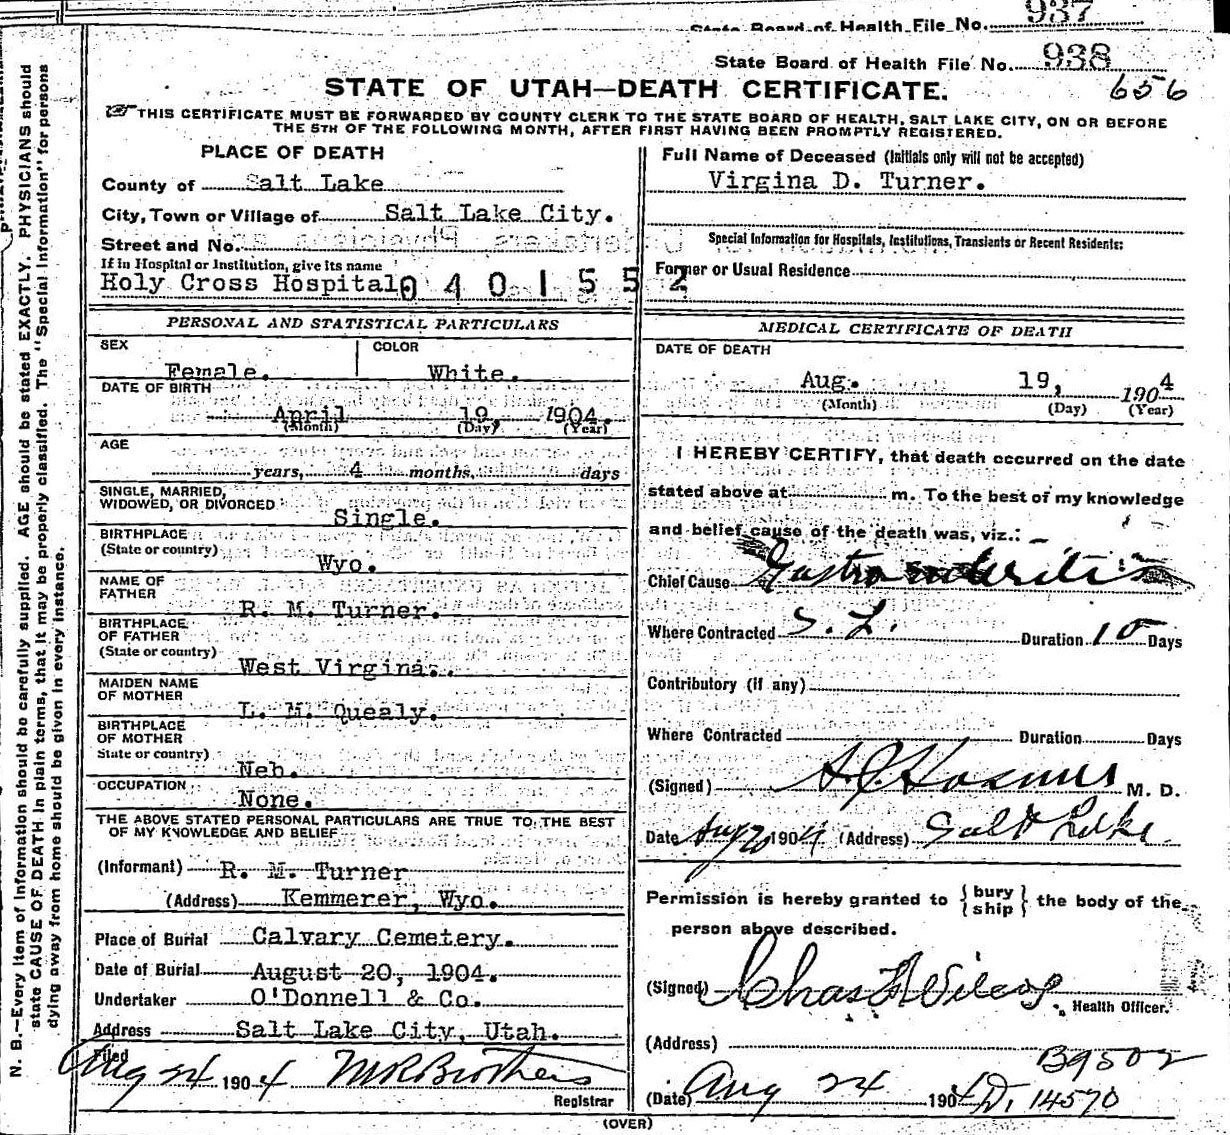 937
State Board of Health File No.
State Board of Health File No. 938
656
STATE OF UTAH—DEATH CERTIFICATE.
THIS CERTIFICATE MUST BE FORWARDED BY COUNTY CLERK TO THE STATE BOARD OF HEALTH, SALT LAKE CITY, ON OR BEFORE
THE 5TH OF THE FOLLOWING MONTH, AFTER FIRST HAVING BEEN PROMPTLY REGISTERED.
N. B.—Every item of information should be carefully supplied. AGE should be stated EXACTLY. PHYSICIANS should
state CAUSE OF DEATH in plain terms, that it may be properly classified. The "Special Information" for persons
dying away from home should be given in every instance.
PLACE OF DEATH
County of Salt Lake
City, Town or Village of Salt Lake City.
Street and No.
If in Hospital or Institution, give its name
Holy Cross Hospital
0401552
PERSONAL AND STATISTICAL PARTICULARS
SEX Female.
COLOR White.
DATE OF BIRTH
April 19, 1904.
(Month) (Day) (Year)
AGE
years, 4 months, days
SINGLE, MARRIED,
WIDOWED, OR DIVORCED Single.
BIRTHPLACE
(State or country) Wyo.
NAME OF
FATHER R. M. Turner.
BIRTHPLACE
OF FATHER
(State or country) West Virgina..
MAIDEN NAME
OF MOTHER L. M. Quealy.
BIRTHPLACE
OF MOTHER
State or country) Neb.
OCCUPATION None.
THE ABOVE STATED PERSONAL PARTICULARS ARE TRUE TO THE BEST
OF MY KNOWLEDGE AND BELIEF
(Informant) R. M. Turner
(Address) Kemmerer, Wyo.
Place of Burial Calvary Cemetery.
Date of Burial August 20, 1904.
Undertaker O'Donnell & Co.
Address Salt Lake City, Utah.
Filed
Aug 24 1904 M R Brothers
Registrar
Full Name of Deceased (Initials only will not be accepted)
Virgina D. Turner.
Special Information for Hospitals, Institutions, Transients or Recent Residents:
Former or Usual Residence
MEDICAL CERTIFICATE OF DEATH
DATE OF DEATH
Aug. 19, 1904
(Month) (Day) (Year)
I HEREBY CERTIFY, that death occurred on the date
stated above at m. To the best of my knowledge
and belief cause of the death was, viz.:
Chief Cause Gastro enteritis
Where Contracted S. L. Duration 10 Days
Contributory (if any)
Where Contracted Duration Days
(Signed) M. D.
Date Aug 20 1904 (Address) Salt Lake
Permission is hereby granted to {bury
ship} the body of the
person above described.
(Signed) Chas F Wilcox, Health Officer.
(Address)
B9502
(Date) Aug 24 1904 D. 14570
(OVER)